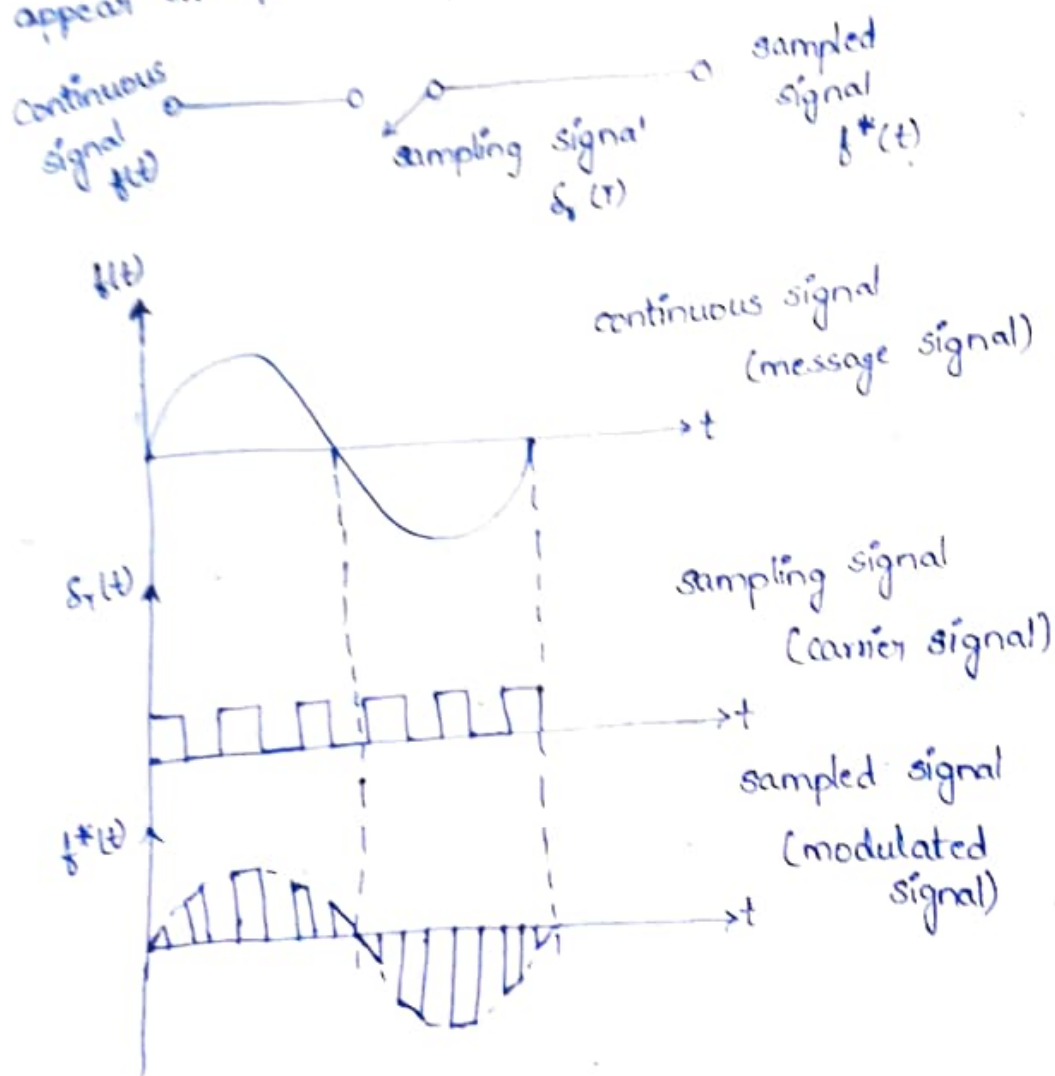 appear
Continuous
signal
f(t)
sampling signal
δ_T (T)
sampled
signal
f*(t)
f(t)
continuous signal
(message signal)
t
δ_T(t)
sampling signal
(carrier signal)
t
sampled signal
(modulated
signal)
f*(t)
t